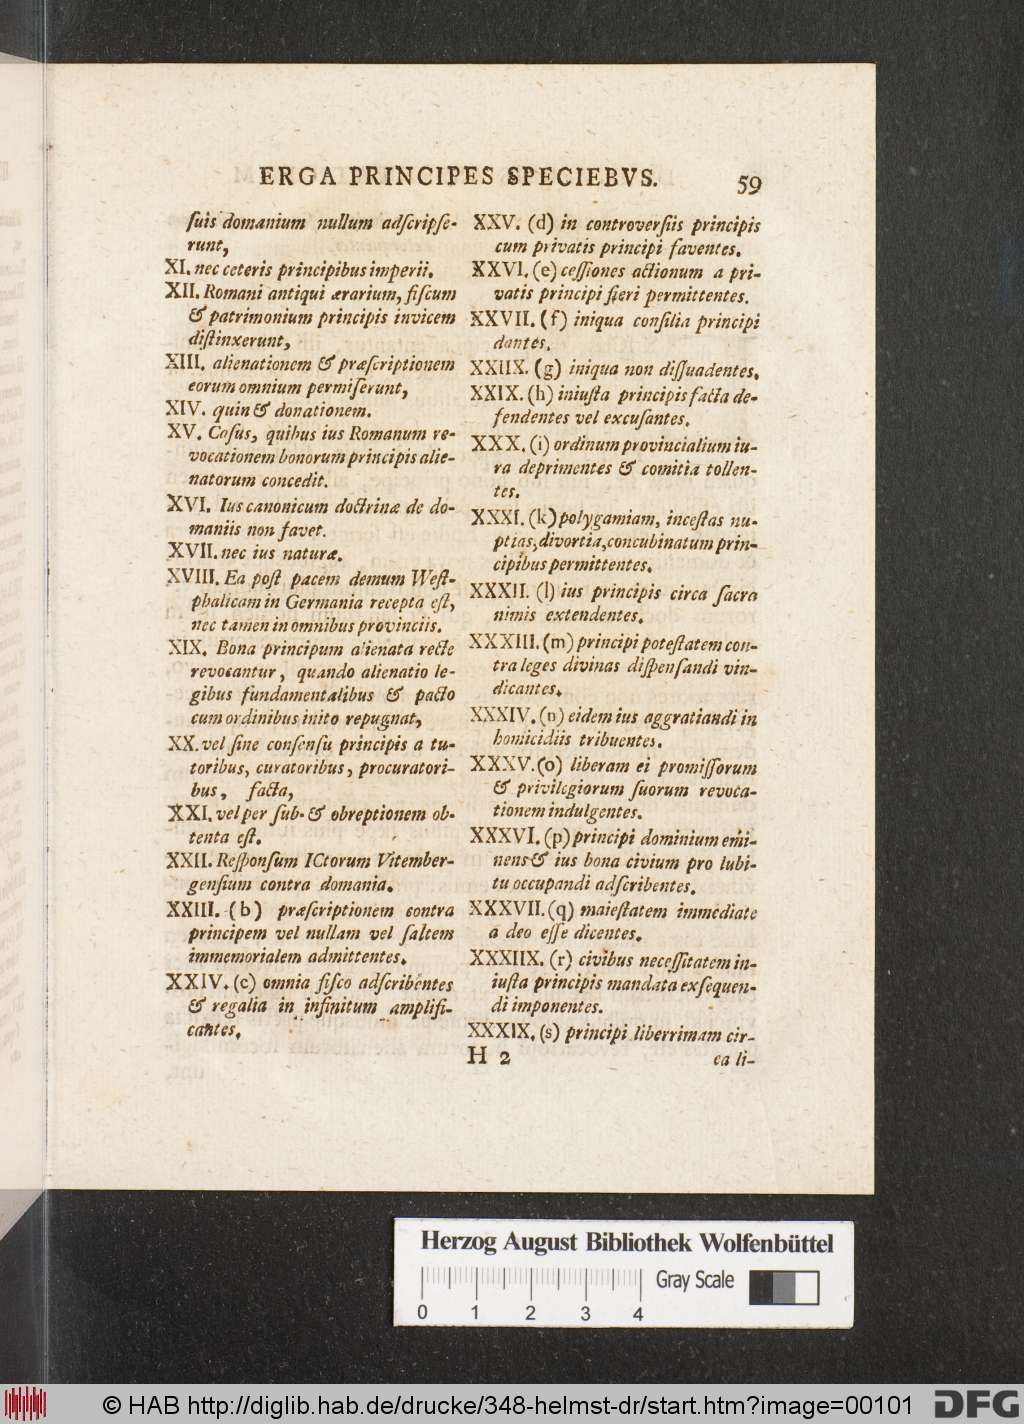 ERGA PRINCIPES SPECIEBVS. 59
ſuis domanium nullum adſcripſe-
runt,
XI. nec ceteris principibus imperii.
XII. Romani antiqui ærarium, fiſcum
& patrimonium principis invicem
diſtinxerunt,
XIII. alienationem & præſcriptionem
eorum omnium permiſerunt,
XIV. quin & donationem.
XV. Caſus, quibus ius Romanum re-
vocationem bonorum principis alie-
natorum concedit.
XVI. Ius canonicum doctrinæ de do-
maniis non favet.
XVII. nec ius naturæ.
XVIII. Ea poſt pacem demum Weſt-
phalicam in Germania recepta eſt,
nec tamen in omnibus provinciis.
XIX. Bona principum alienata recte
revocantur, quando alienatio le-
gibus fundamentalibus & pacto
cum ordinibus inito repugnat,
XX. vel ſine conſenſu principis a tu-
toribus, curatoribus, procuratori-
bus, facta,
XXI. vel per ſub- & obreptionem ob-
tenta eſt.
XXII. Reſponſum ICtorum Vitember-
genſium contra domania.
XXIII. (b) præſcriptionem contra
principem vel nullam vel ſaltem
immemorialem admittentes.
XXIV. (c) omnia fiſco adſcribentes
& regalia in infinitum amplifi-
cantes.
XXV. (d) in controverſiis principis
cum privatis principi faventes.
XXVI. (e) ceſſiones actionum a pri-
vatis principi fieri permittentes.
XXVII. (f) iniqua conſilia principi
dantes.
XXIIX. (g) iniqua non diſſuadentes.
XXIX. (h) iniuſta principis facta de-
fendentes vel excuſantes.
XXX. (i) ordinum provincialium iu-
ra deprimentes & comitia tollen-
tes.
XXXI. (k) polygamiam, inceſtas nu-
ptias, divortia, concubinatum prin-
cipibus permittentes.
XXXII. (l) ius principis circa ſacra
nimis extendentes.
XXXIII. (m) principi poteſtatem con-
tra leges divinas diſpenſandi vin-
dicantes.
XXXIV. (n) eidem ius aggratiandi in
homicidiis tribuentes.
XXXV. (o) liberam ei promiſſorum
& privilegiorum ſuorum revoca-
tionem indulgentes.
XXXVI. (p) principi dominium emi-
nens & ius bona civium pro lubi-
tu occupandi adſcribentes.
XXXVII. (q) maieſtatem immediate
a deo eſſe dicentes.
XXXIIX. (r) civibus neceſſitatem in-
iuſta principis mandata exſequen-
di imponentes.
XXXIX. (s) principi liberrimam cir-
H 2 ca li-
Herzog August Bibliothek Wolfenbüttel
Gray Scale
0 1 2 3 4
© HAB http://diglib.hab.de/drucke/348-helmst-dr/start.htm?image=00101
DFG